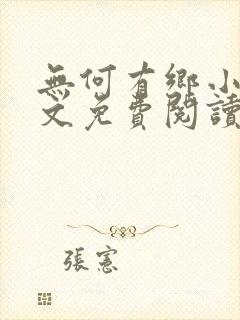 無何有鄉小
文免費閱讀
張憲